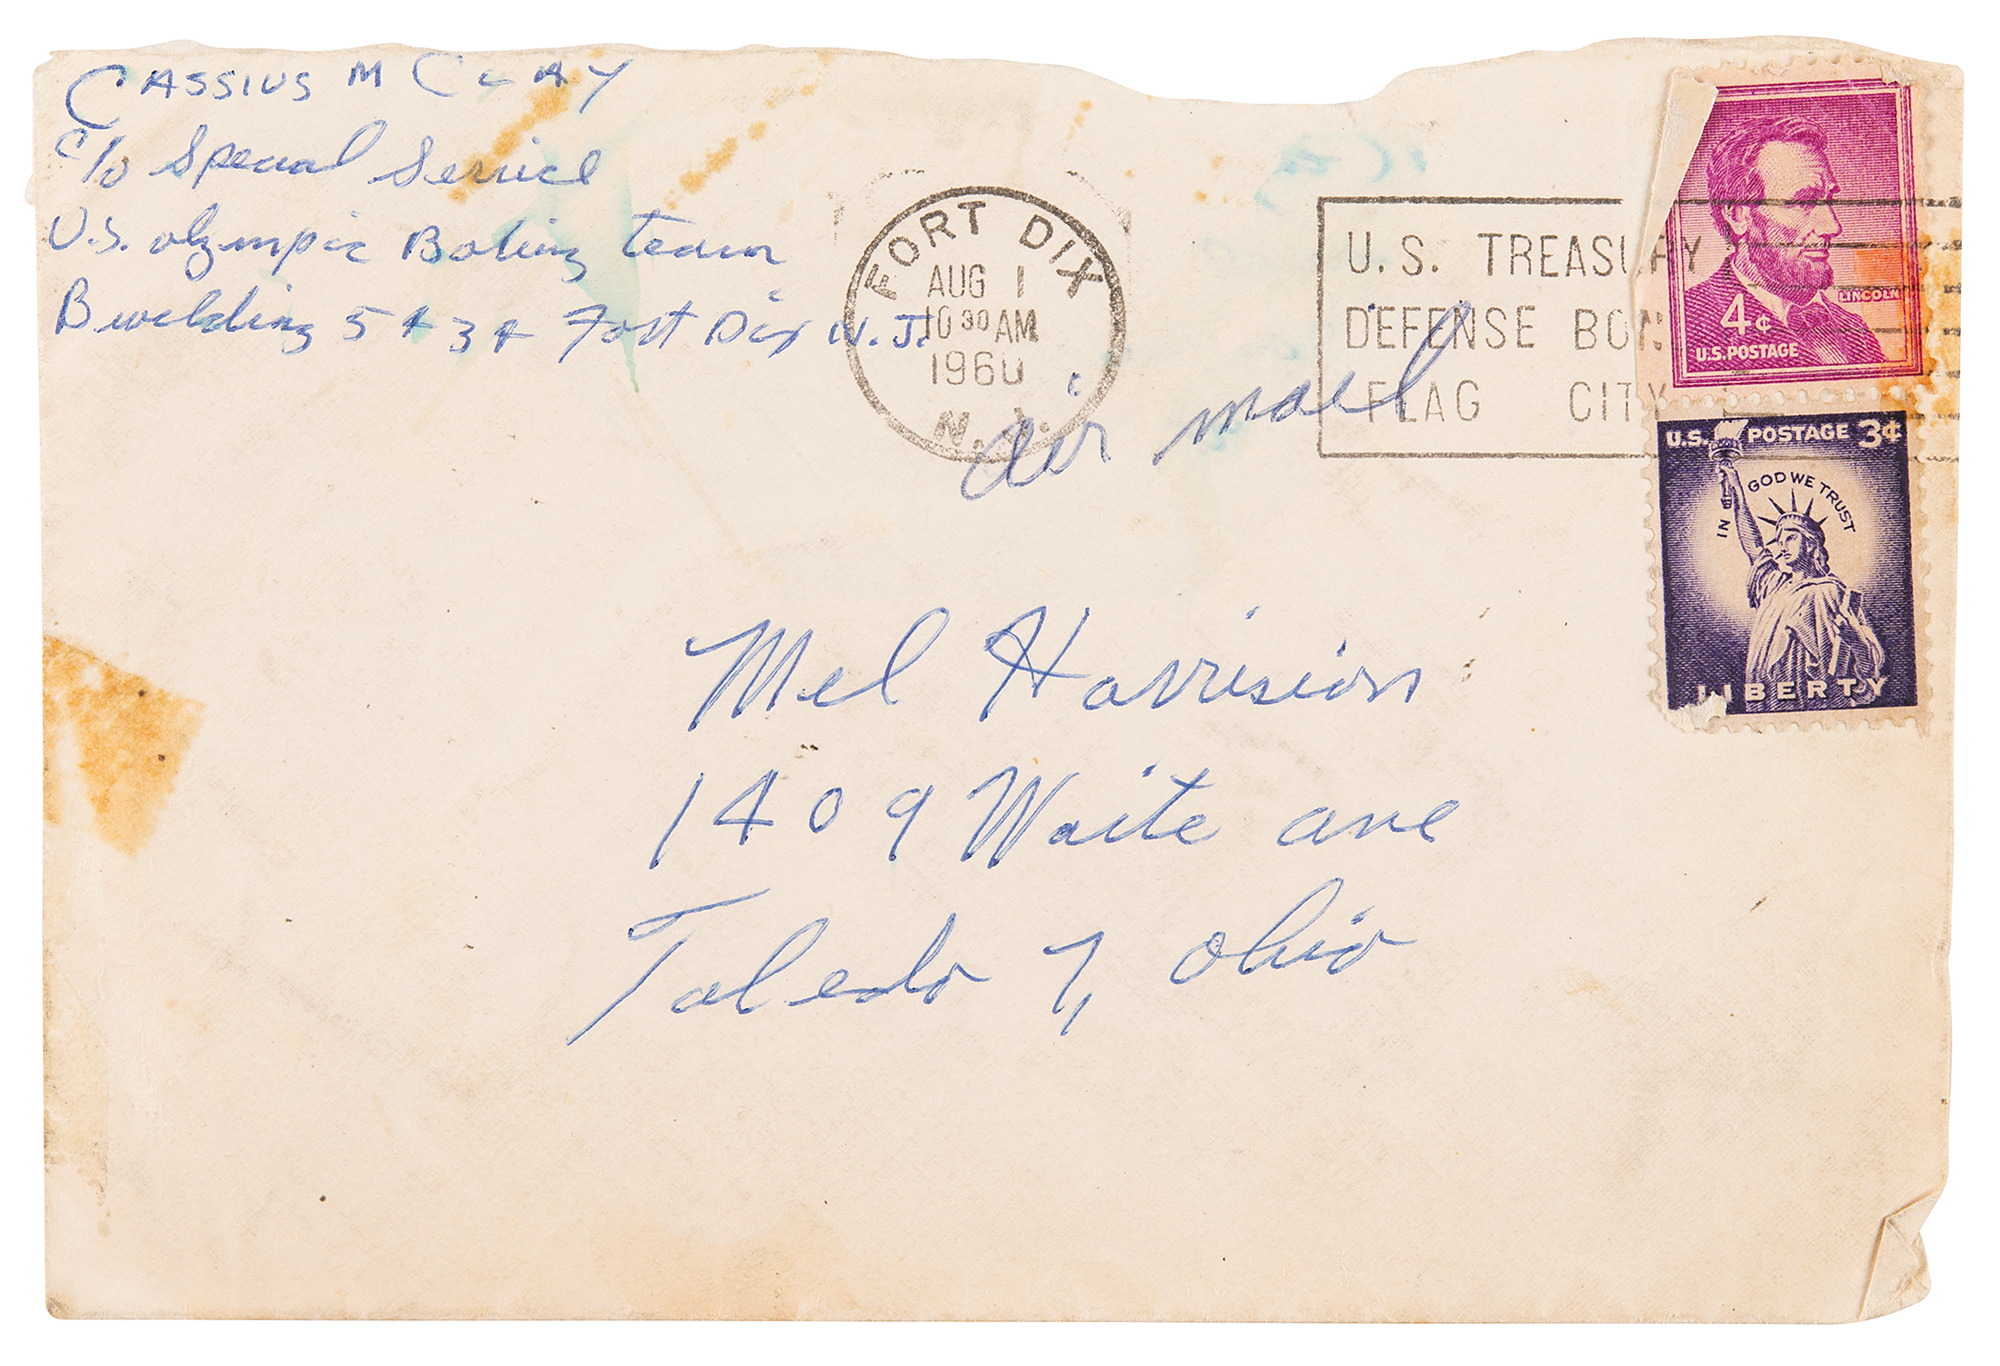 CASSIUS M CLAY
c/o Special Service
U.S. olympic Boxing team
Buielding 5434 Fort Dix N.J.
FORT DIX
AUG 1
10 30 AM
1960
N.J.
U.S. TREASURY
DEFENSE BON
FLAG CITY
LINCOLN
4¢
U.S. POSTAGE
air mail
U.S. POSTAGE 3¢
IN GOD WE TRUST
LIBERTY
Mel Harrision
1409 Waite ave
Toledo 7, Ohio